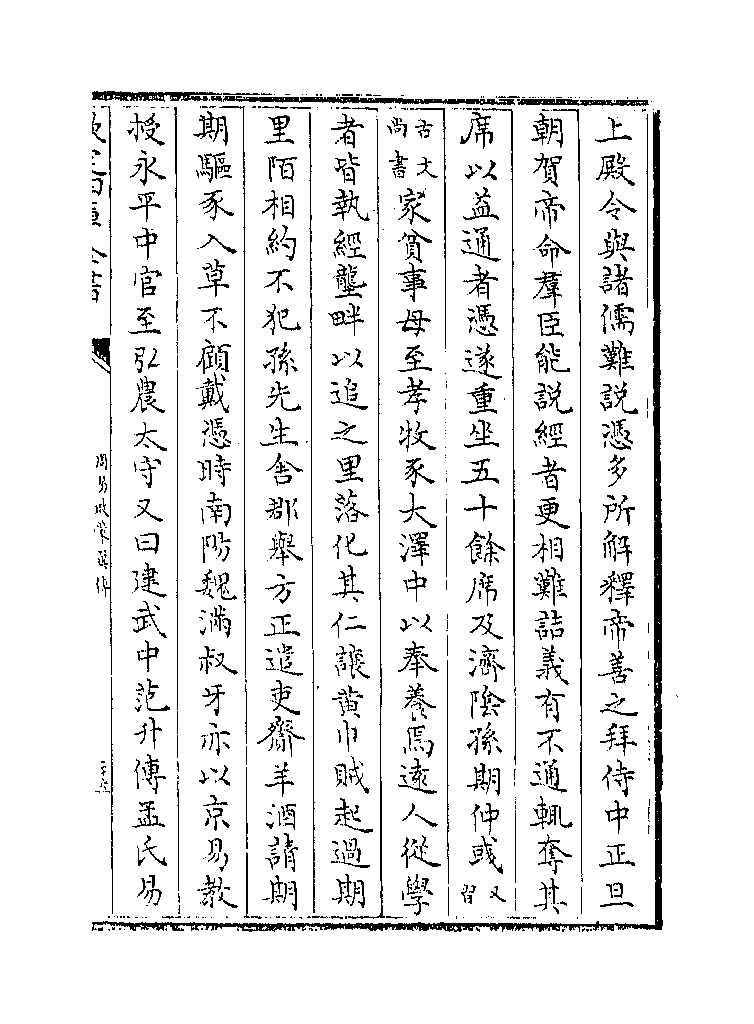 上殿令與諸儒難説憑多所解釋帝善之拜侍中正旦
朝賀帝命羣臣能説經者更相難詰義有不通輒奪其
席以益通者憑遂重坐五十餘席及濟陰孫期仲彧又習
古文尚書家貧事母至孝牧豕大澤中以奉養焉逺人從學
者皆執經壟畔以追之里落化其仁讓黄巾賊起過期
里陌相約不犯孫先生舍郡舉方正遣吏齋羊酒請期
期驅豕入草不顧戴憑時南陽魏滿叔牙亦以京易教
授永平中官至弘農太守又曰建武中范升傳孟氏易
欽定四庫全書